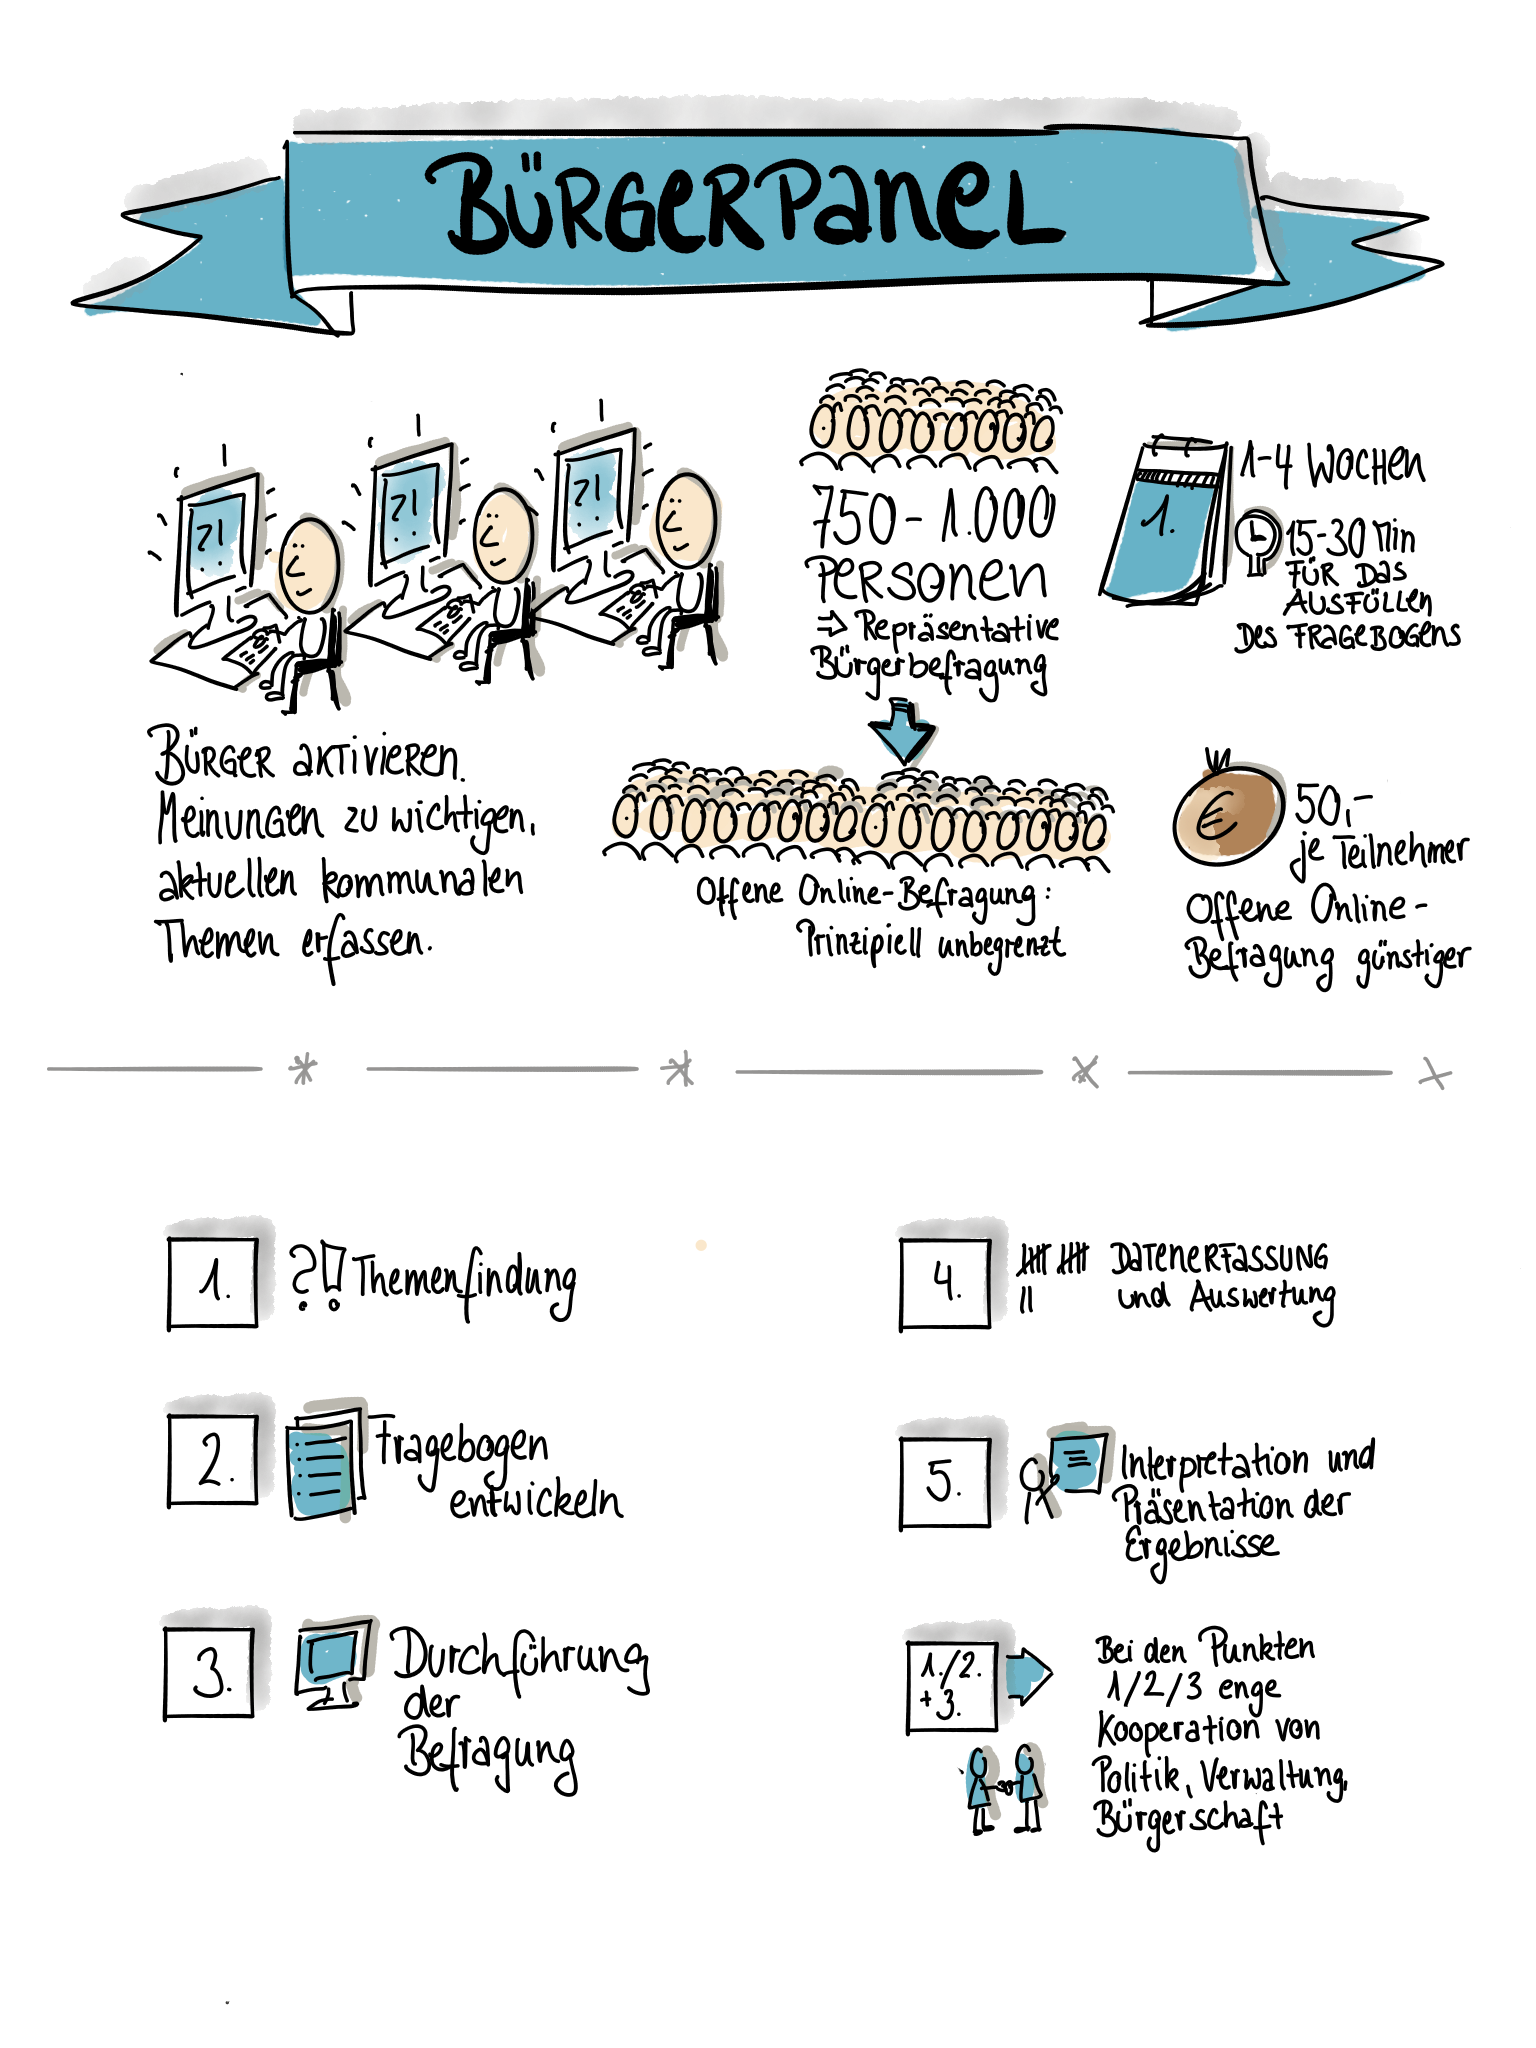 BÜRGERPANEL
?!
?!
?!
BÜRGER AKTIVIEREN.
Meinungen zu wichtigen,
aktuellen kommunalen
Themen erfassen.
750 - 1.000
PERSONEN
⇒ Repräsentative
Bürgerbefragung
Offene Online-Befragung:
Prinzipiell unbegrenzt
1.
1-4 WOCHEN
15-30 Min
FÜR DAS
AUSFÜLLEN
DES FRAGEBOGENS
€
50,-
je Teilnehmer
Offene Online-
Befragung günstiger
1.
?! Themenfindung
2.
Fragebogen
entwickeln
3.
Durchführung
der
Befragung
4.
DATENERFASSUNG
und Auswertung
5.
Interpretation und
Präsentation der
Ergebnisse
1./2.
+ 3.
Bei den Punkten
1/2/3 enge
Kooperation von
Politik, Verwaltung,
Bürgerschaft